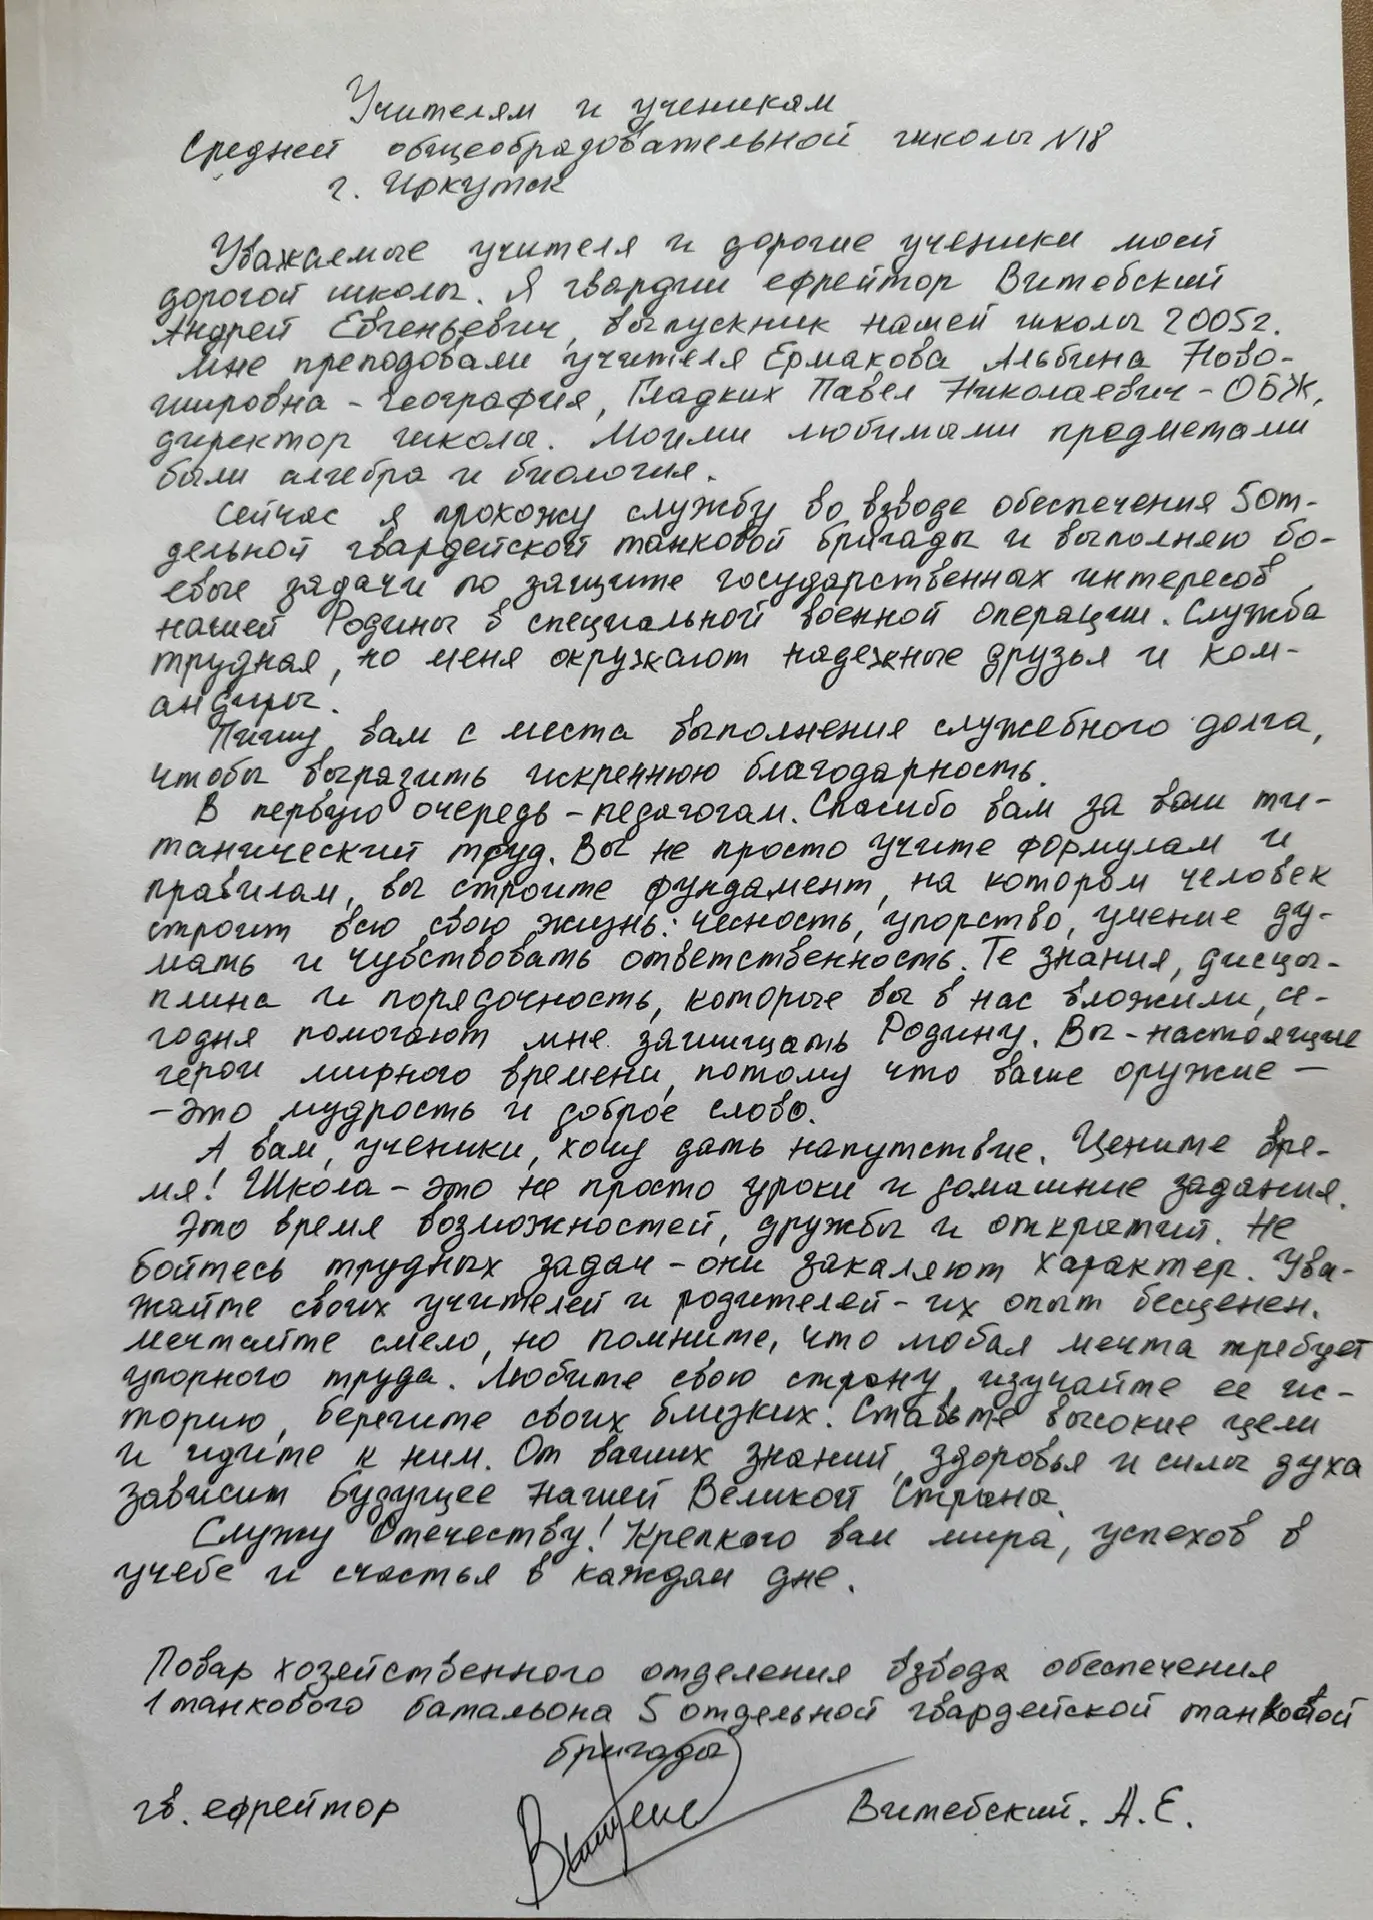 Учителям и ученикам
Средней общеобразовательной школы №18
г. Иркутск
Уважаемые учителя и дорогие ученики моей
дорогой школы. Я гвардии ефрейтор Витебский
Андрей Евгеньевич, выпускник нашей школы 2005г.
Мне преподовали учителя Ермакова Альбина Ново-
шировна - география, Гладких Павел Николаевич - ОБЖ,
директор школы. Моими любимыми предметами
были алгебра и биология.
Сейчас я прохожу службу во взводе обеспечения 5 от-
дельной гвардейской танковой бригады и выполняю бо-
евые задачи по защите государственных интересов
нашей Родины в специальной военной операции. Служба
трудная, но меня окружают надежные друзья и ком-
андиры.
Пишу вам с места выполнения служебного долга,
чтобы выразить искреннюю благодарность.
В первую очередь - педагогам. Спасибо вам за ваш ти-
танический труд. Вы не просто учите формулам и
правилам, вы строите фундамент, на котором человек
строит всю свою жизнь: чесность, упорство, умение ду-
мать и чувствовать ответственность. Те знания, дисцы-
плина и порядочность, которые вы в нас вложили, се-
годня помогают мне защищать Родину. Вы - настоящие
герои мирного времени, потому что ваше оружие —
- это мудрость и доброе слово.
А вам, ученики, хочу дать напутствие. Цените вре-
мя! Школа - это не просто уроки и домашние задания.
Это время возможностей, дружбы и открытий. Не
бойтесь трудных задач - они закаляют характер. Ува-
жайте своих учителей и родителей - их опыт бесценен.
Мечтайте смело, но помните, что любая мечта требует
упорного труда. Любите свою страну, изучайте ее ис-
торию, берегите своих близких. Ставьте высокие цели
и идите к ним. От ваших знаний, здоровья и силы духа
зависит будущее нашей Великой Страны.
Служу Отечеству! Крепкого вам мира, успехов в
учебе и счастья в каждом дне.
Повар хозяйственного отделения взвода обеспечения
1 танкового батальона 5 отдельной гвардейской танковой
бригады
гв. ефрейтор Витебский. А. Е.